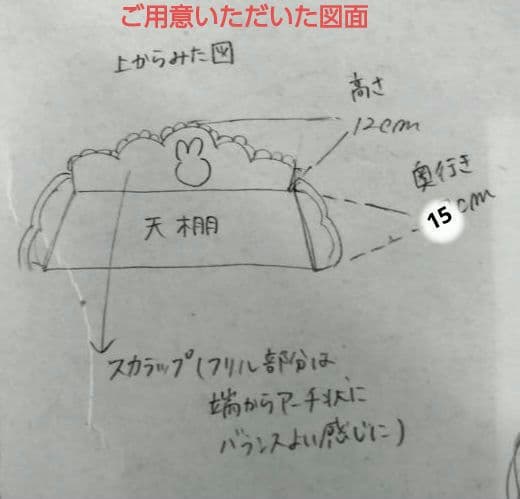 ご用意いただいた図面
上からみた図
高さ
12cm
奥行き
15cm
天棚
スカラップ(フリル部分は
端からアーチ状に
バランスよい感じに)